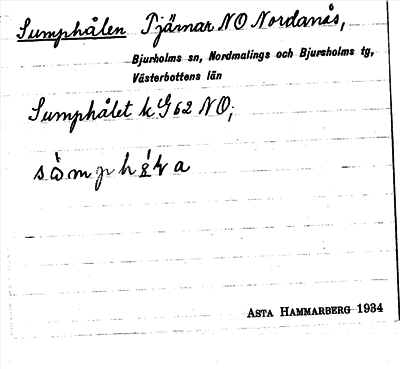 Sumphålen Tjärnar NO Nordanås,
Bjurholms sn, Nordmalings och Bjursholms tg,
Västerbottens län
Sumphålet k G 62 NO;
ASTA HAMMARBERG 1934